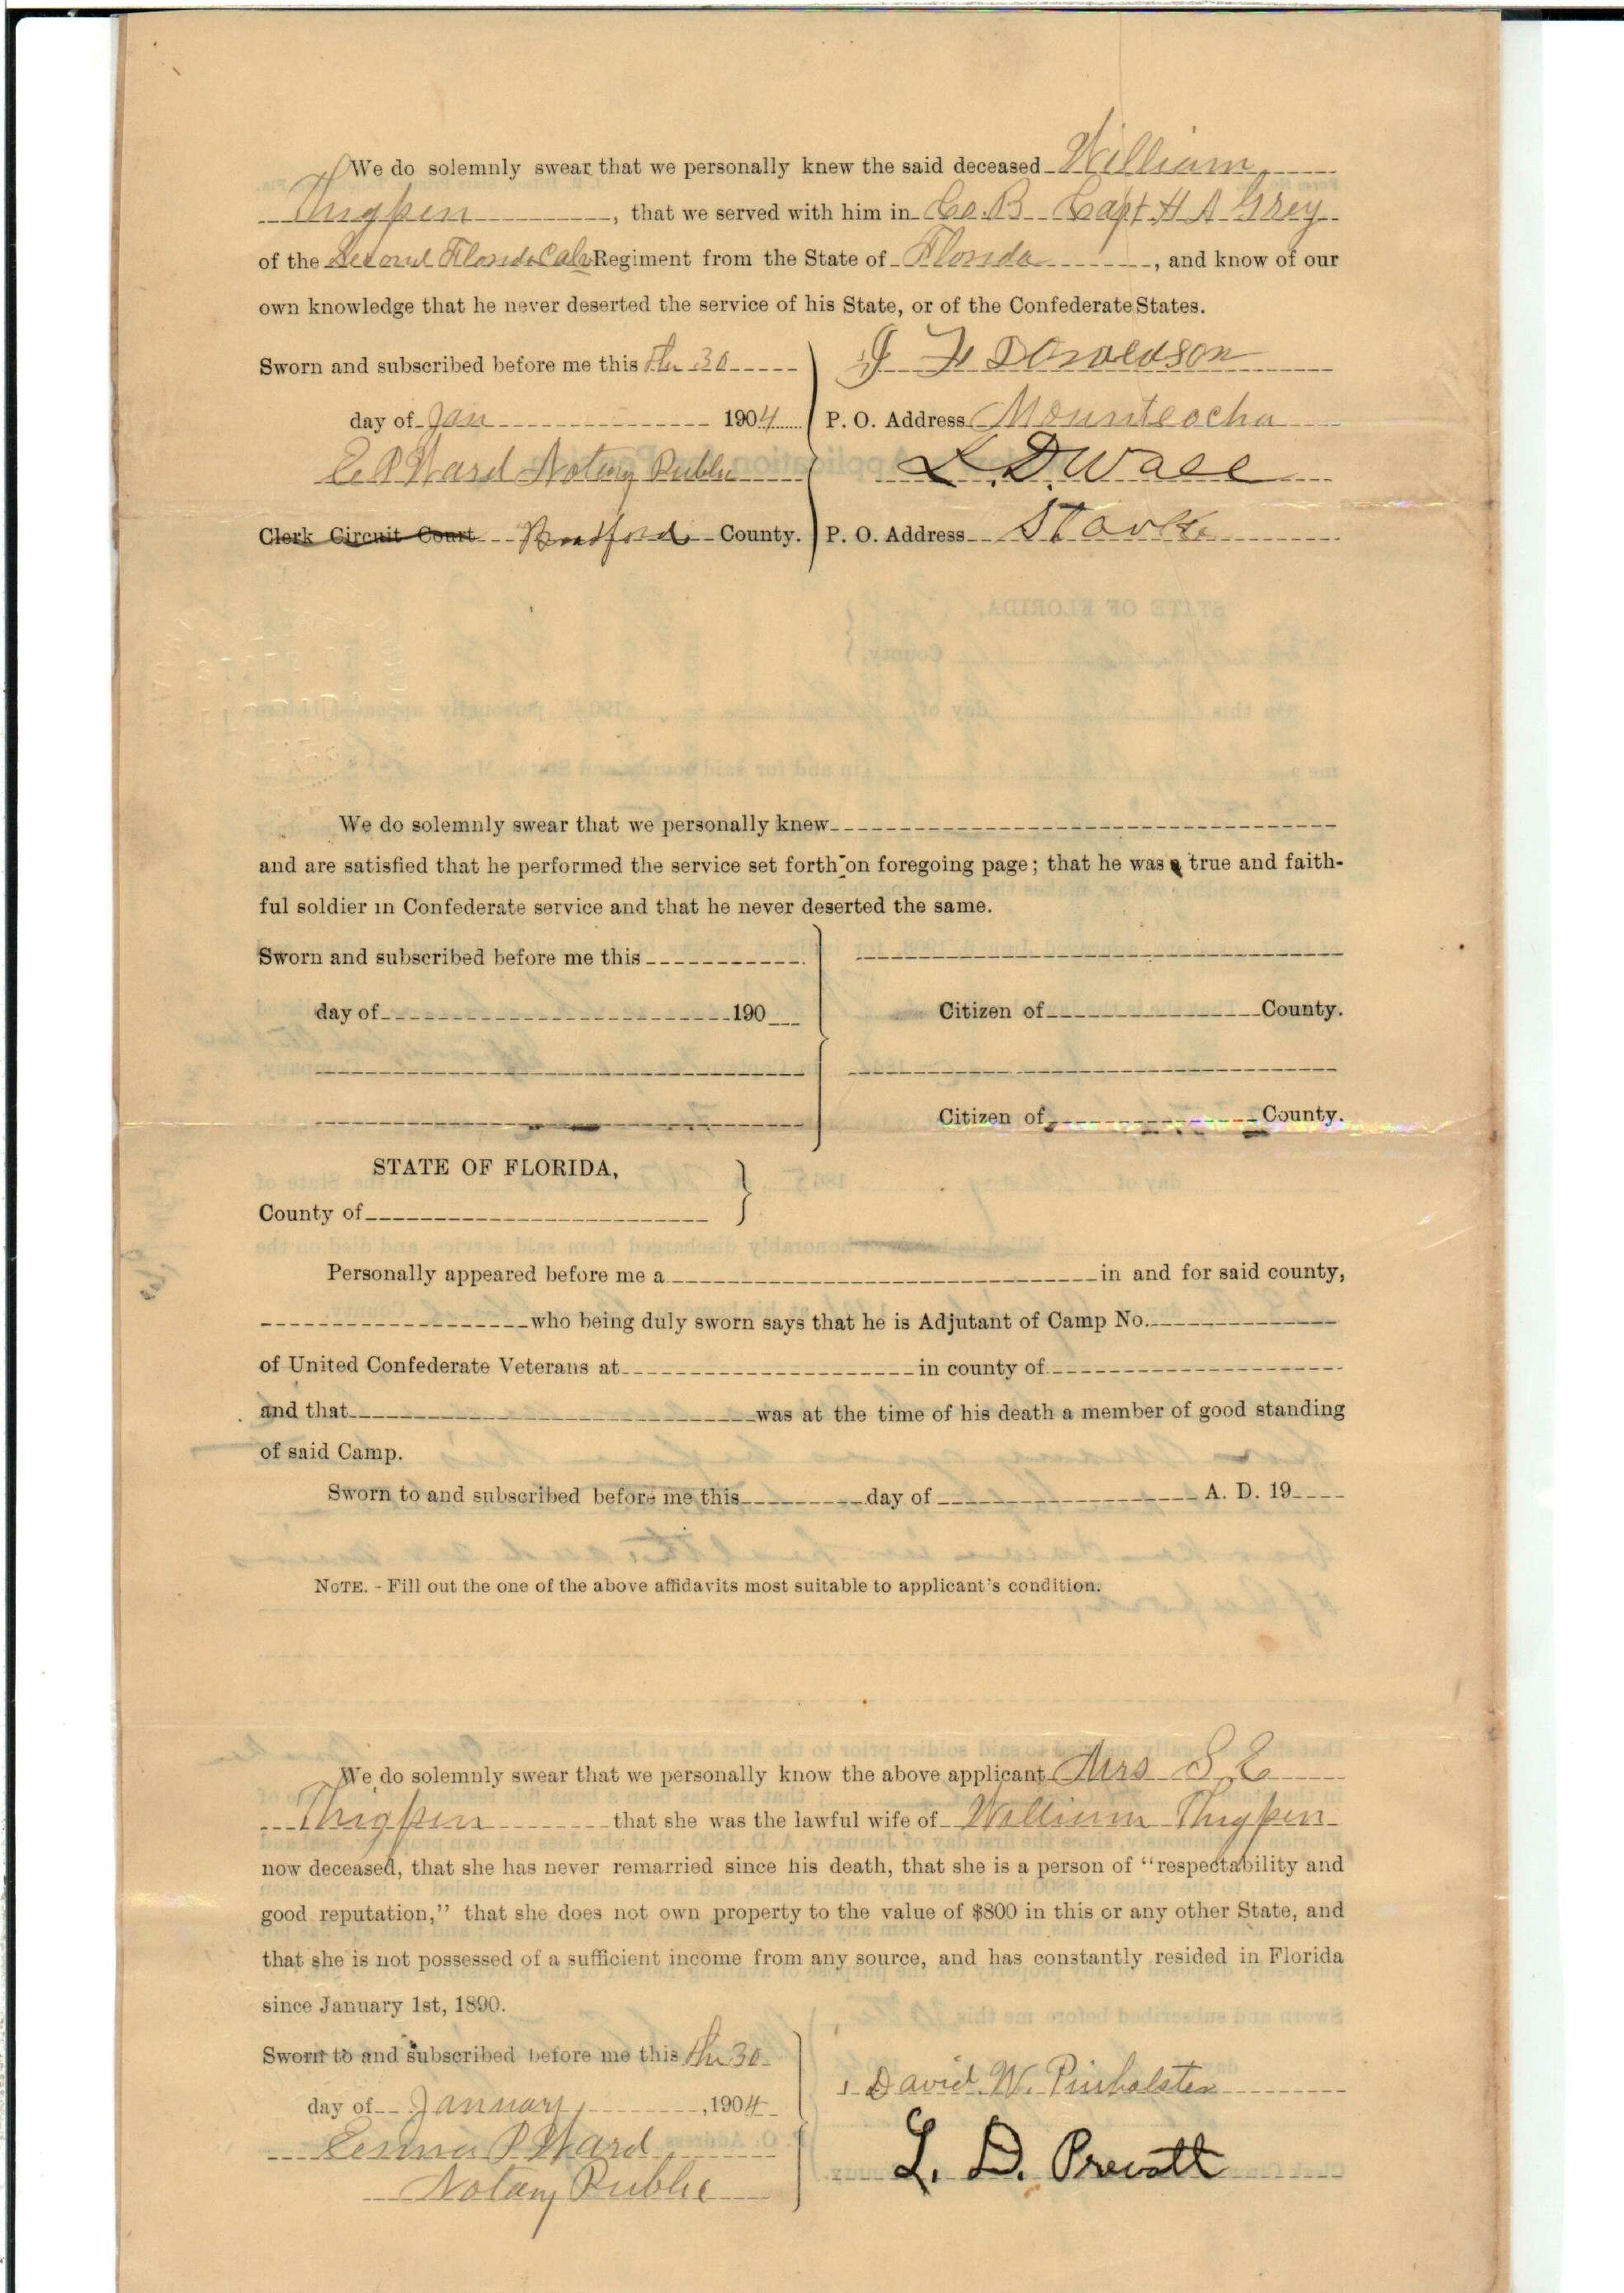 We do solemnly swear that we personally knew the said deceased William
Thigpen, that we served with him in Co. B Capt H A Grey
of the Second Florida Calv Regiment from the State of Florida, and know of our
own knowledge that he never deserted the service of his State, or of the Confederate States.
Sworn and subscribed before me this the 30
day of Jan 1904
E. P Ward Notary Public
Clerk Circuit Court Bradford County.
J F Donaldson
P. O. Address Monteocha
L. D. Wall
P. O. Address Starke
We do solemnly swear that we personally knew
and are satisfied that he performed the service set forth on foregoing page; that he was a true and faith-
ful soldier in Confederate service and that he never deserted the same.
Sworn and subscribed before me this
day of 190
Citizen of County.
Citizen of County.
STATE OF FLORIDA,
County of
Personally appeared before me a in and for said county,
who being duly sworn says that he is Adjutant of Camp No.
of United Confederate Veterans at in county of
and that was at the time of his death a member of good standing
of said Camp.
Sworn to and subscribed before me this day of A. D. 19
NOTE. - Fill out the one of the above affidavits most suitable to applicant's condition.
We do solemnly swear that we personally know the above applicant Mrs S E
Thigpen that she was the lawful wife of William Thigpen
now deceased, that she has never remarried since his death, that she is a person of "respectability and
good reputation," that she does not own property to the value of $800 in this or any other State, and
that she is not possessed of a sufficient income from any source, and has constantly resided in Florida
since January 1st, 1890.
Sworn to and subscribed before me this the 30
day of January, 1904
Emma P Ward
Notary Public
David W. Pinholster
L. D. Prevatt